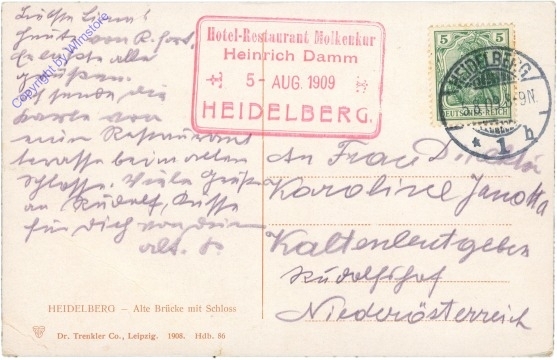 Heute von
alle
Grüßen.
Ich sende die
Karte von
mein Restaurant
terasse beim alten
Schlosse. Viele Grüße
an Rudolf, Küsse
für dich von dein
alt.
Copyright by Wimstore
Hotel-Restaurant Molkenkur
Heinrich Damm
5- AUG. 1909
HEIDELBERG.
5 5
DEUTSCHES REICH
HEIDELBERG
5.8.09.8-9N.
* 1 h
An Frau
Karoline Janotta
Kaltenleutgeben
Rudolfshof
Niederösterreich
HEIDELBERG – Alte Brücke mit Schloss
Dr. Trenkler Co., Leipzig. 1908. Hdb. 66